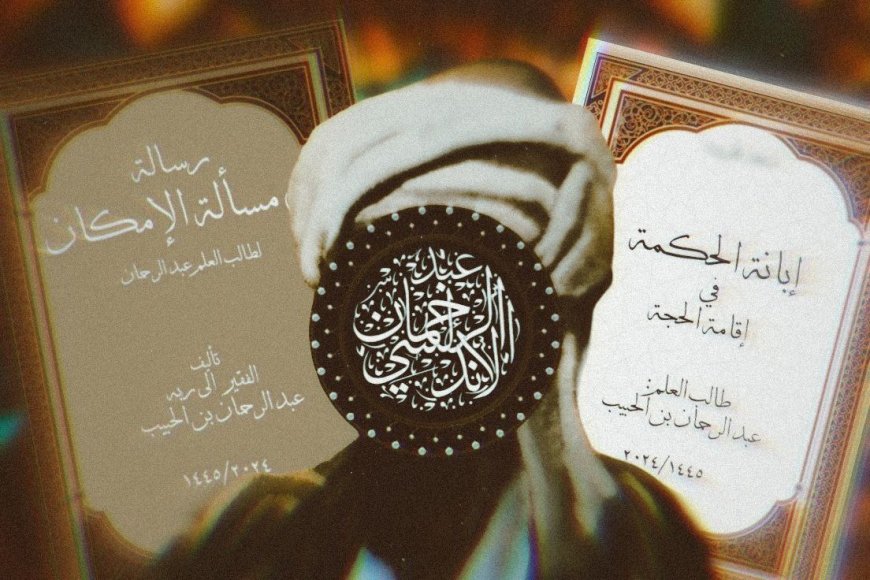 إبانة الحكمة
في
إقامة الحجة
طالب العلم:
عبد الرحمان بن الحبيب
٢٠٢٤/١٤٤٥
عبد
الرحمان
رسالة
مسألة الإمكان
لطالب العلم عبد الرحمان
تأليف
الفقير الى ربه
عبد الرحمان بن الحبيب
١٤٤٥/٢٠٢٤